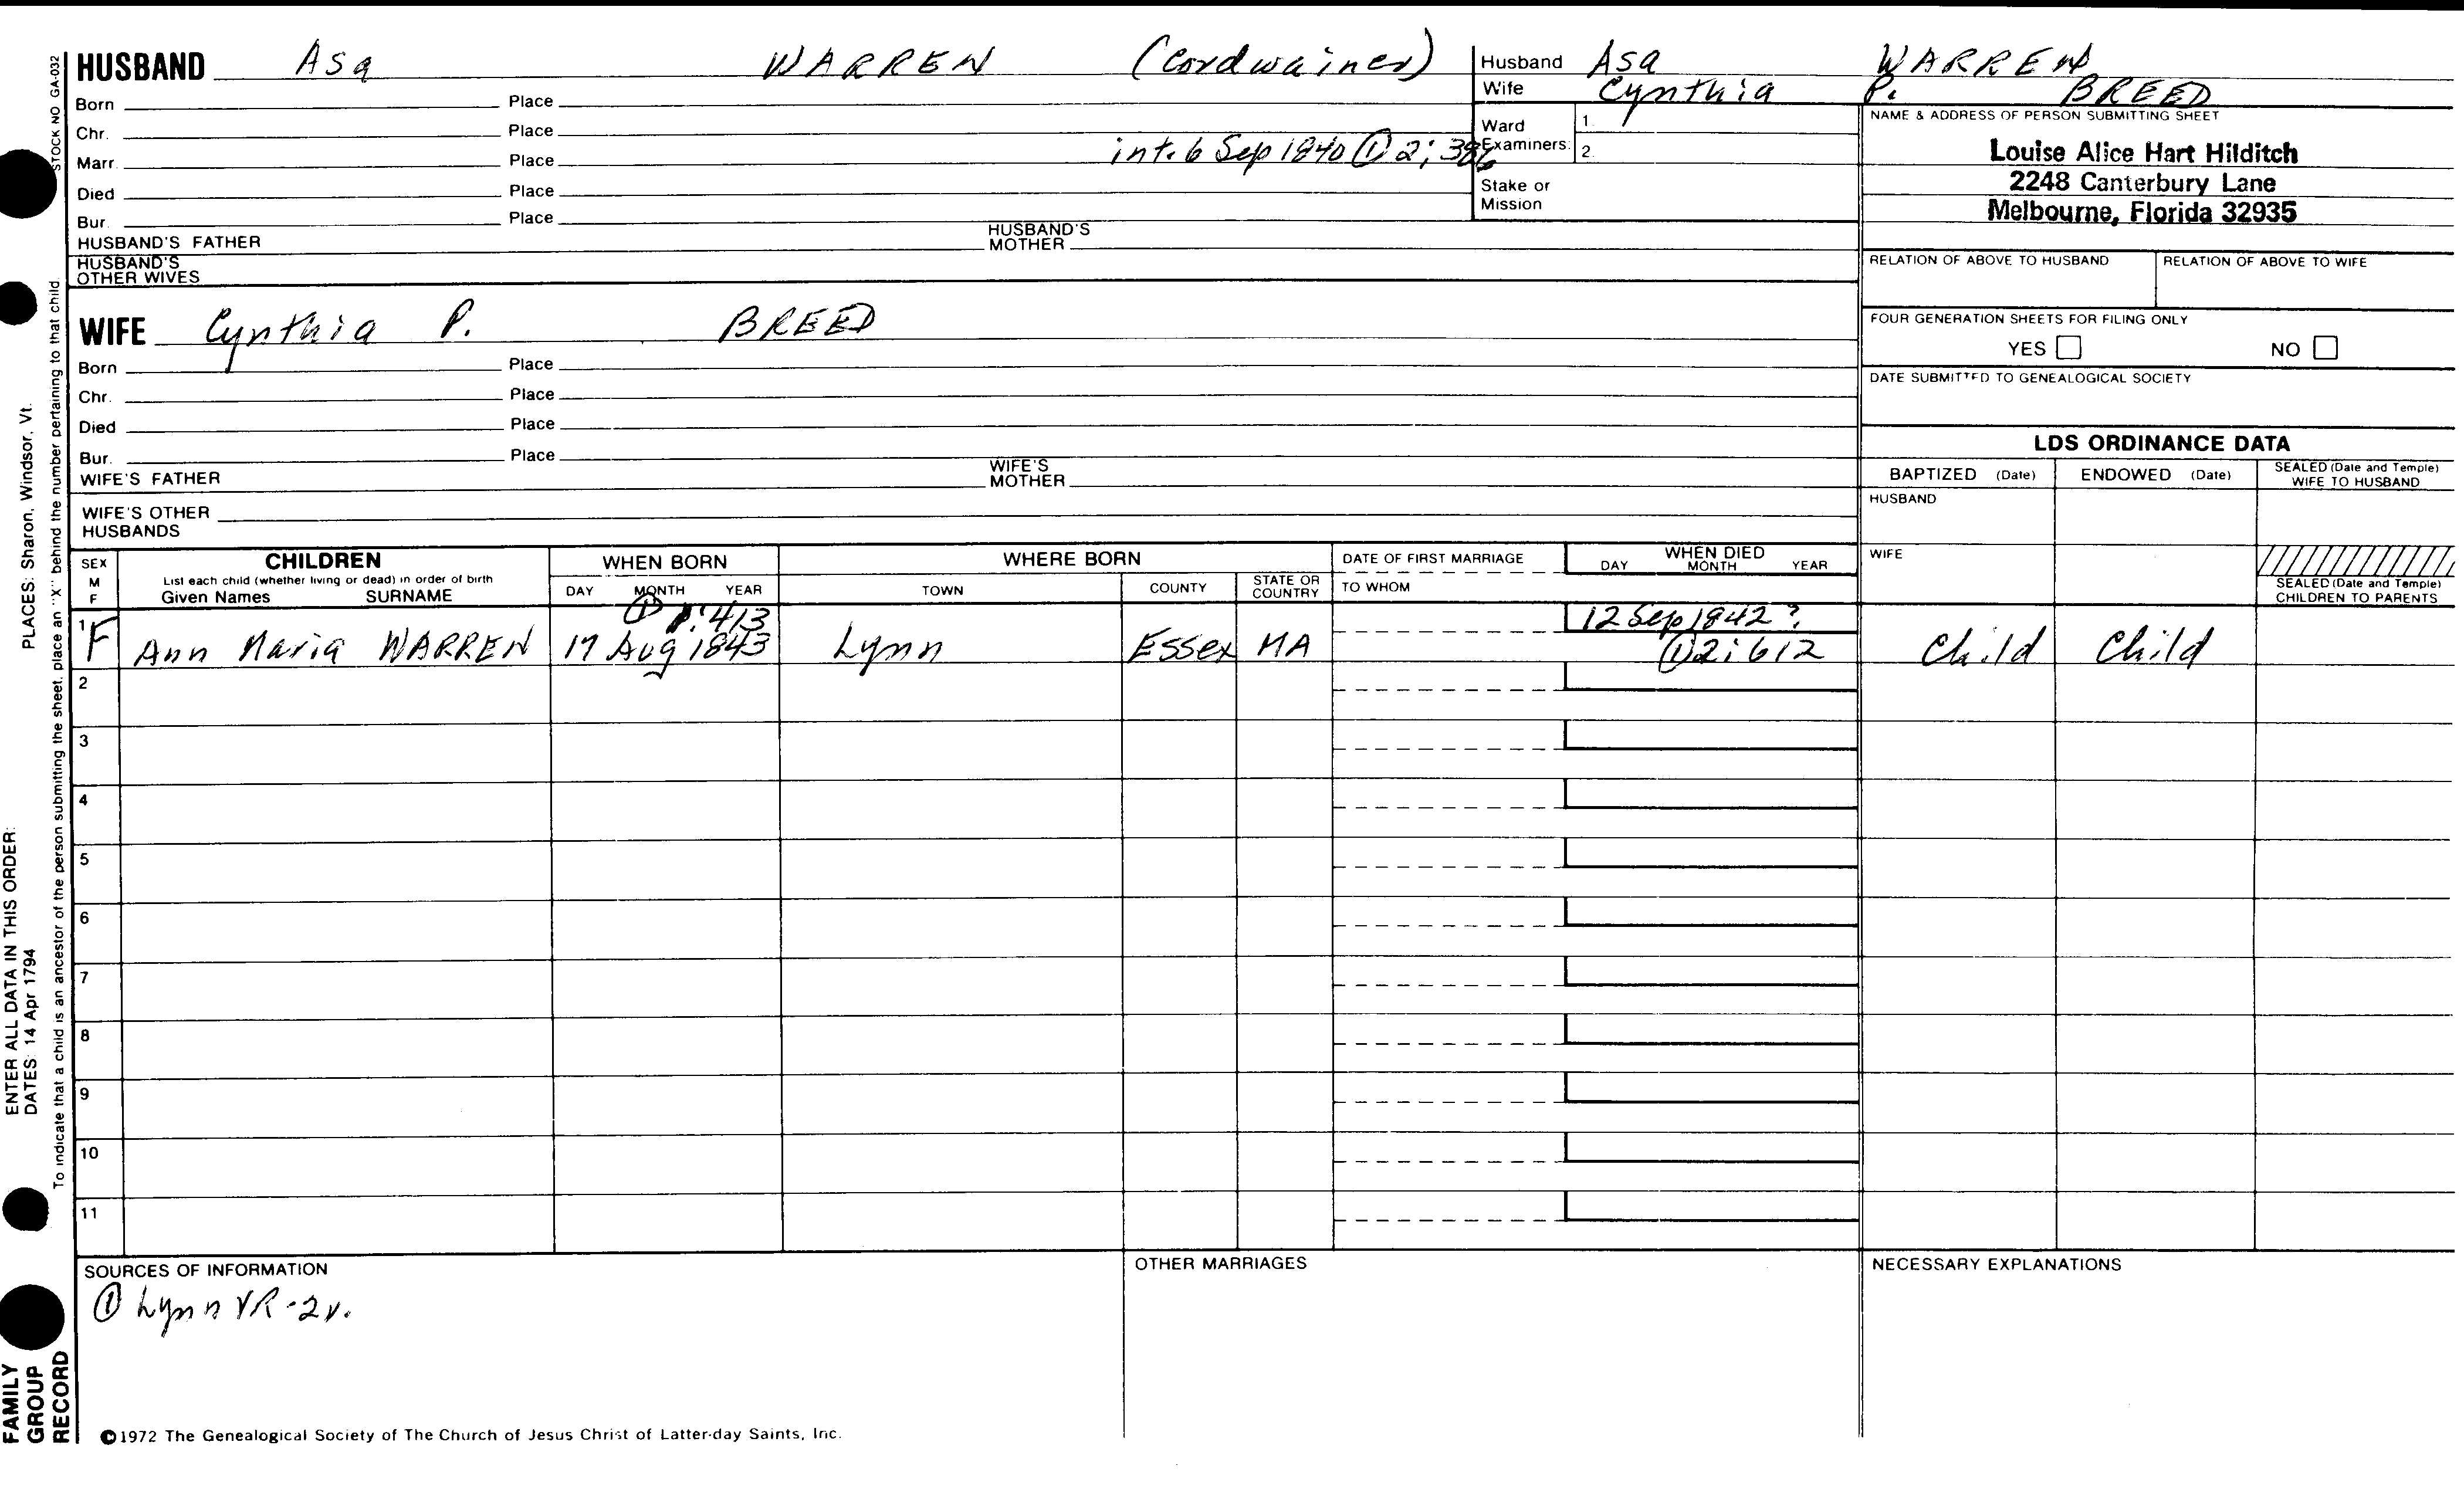 STOCK NO GA-032
HUSBAND Asa WARREN (Cordwainer)
Born Place
Chr. Place
Marr. Place int. 6 Sep 1840 ① 2; 386
Died Place
Bur. Place
HUSBAND'S FATHER HUSBAND'S MOTHER
HUSBAND'S OTHER WIVES
Husband Asa WARREN
Wife Cynthia P. BREED
Ward Examiners: 1. 2.
Stake or Mission
NAME & ADDRESS OF PERSON SUBMITTING SHEET
Louise Alice Hart Hilditch
2248 Canterbury Lane
Melbourne, Florida 32935
RELATION OF ABOVE TO HUSBAND RELATION OF ABOVE TO WIFE
FOUR GENERATION SHEETS FOR FILING ONLY
YES NO
DATE SUBMITTED TO GENEALOGICAL SOCIETY
WIFE Cynthia P. BREED
Born Place
Chr. Place
Died Place
Bur. Place
WIFE'S FATHER WIFE'S MOTHER
WIFE'S OTHER HUSBANDS
LDS ORDINANCE DATA
BAPTIZED (Date) ENDOWED (Date) SEALED (Date and Temple) WIFE TO HUSBAND
HUSBAND
WIFE
SEALED (Date and Temple) CHILDREN TO PARENTS
SEX M F
CHILDREN
List each child (whether living or dead) in order of birth
Given Names SURNAME
WHEN BORN
DAY MONTH YEAR
WHERE BORN
TOWN COUNTY STATE OR COUNTRY
DATE OF FIRST MARRIAGE
TO WHOM
WHEN DIED
DAY MONTH YEAR
① 1:413 12 Sep 1842?
1 F Ann Maria WARREN 17 Aug 1843 Lynn Essex MA ① 2: 612 Child Child
2
3
4
5
6
7
8
9
10
11
SOURCES OF INFORMATION
① Lynn VR - 2v.
OTHER MARRIAGES
NECESSARY EXPLANATIONS
©1972 The Genealogical Society of The Church of Jesus Christ of Latter-day Saints, Inc.
FAMILY GROUP RECORD
ENTER ALL DATA IN THIS ORDER:
DATES: 14 Apr 1794 PLACES: Sharon, Windsor, Vt.
To indicate that a child is an ancestor of the person submitting the sheet, place an "X" behind the number pertaining to that child.